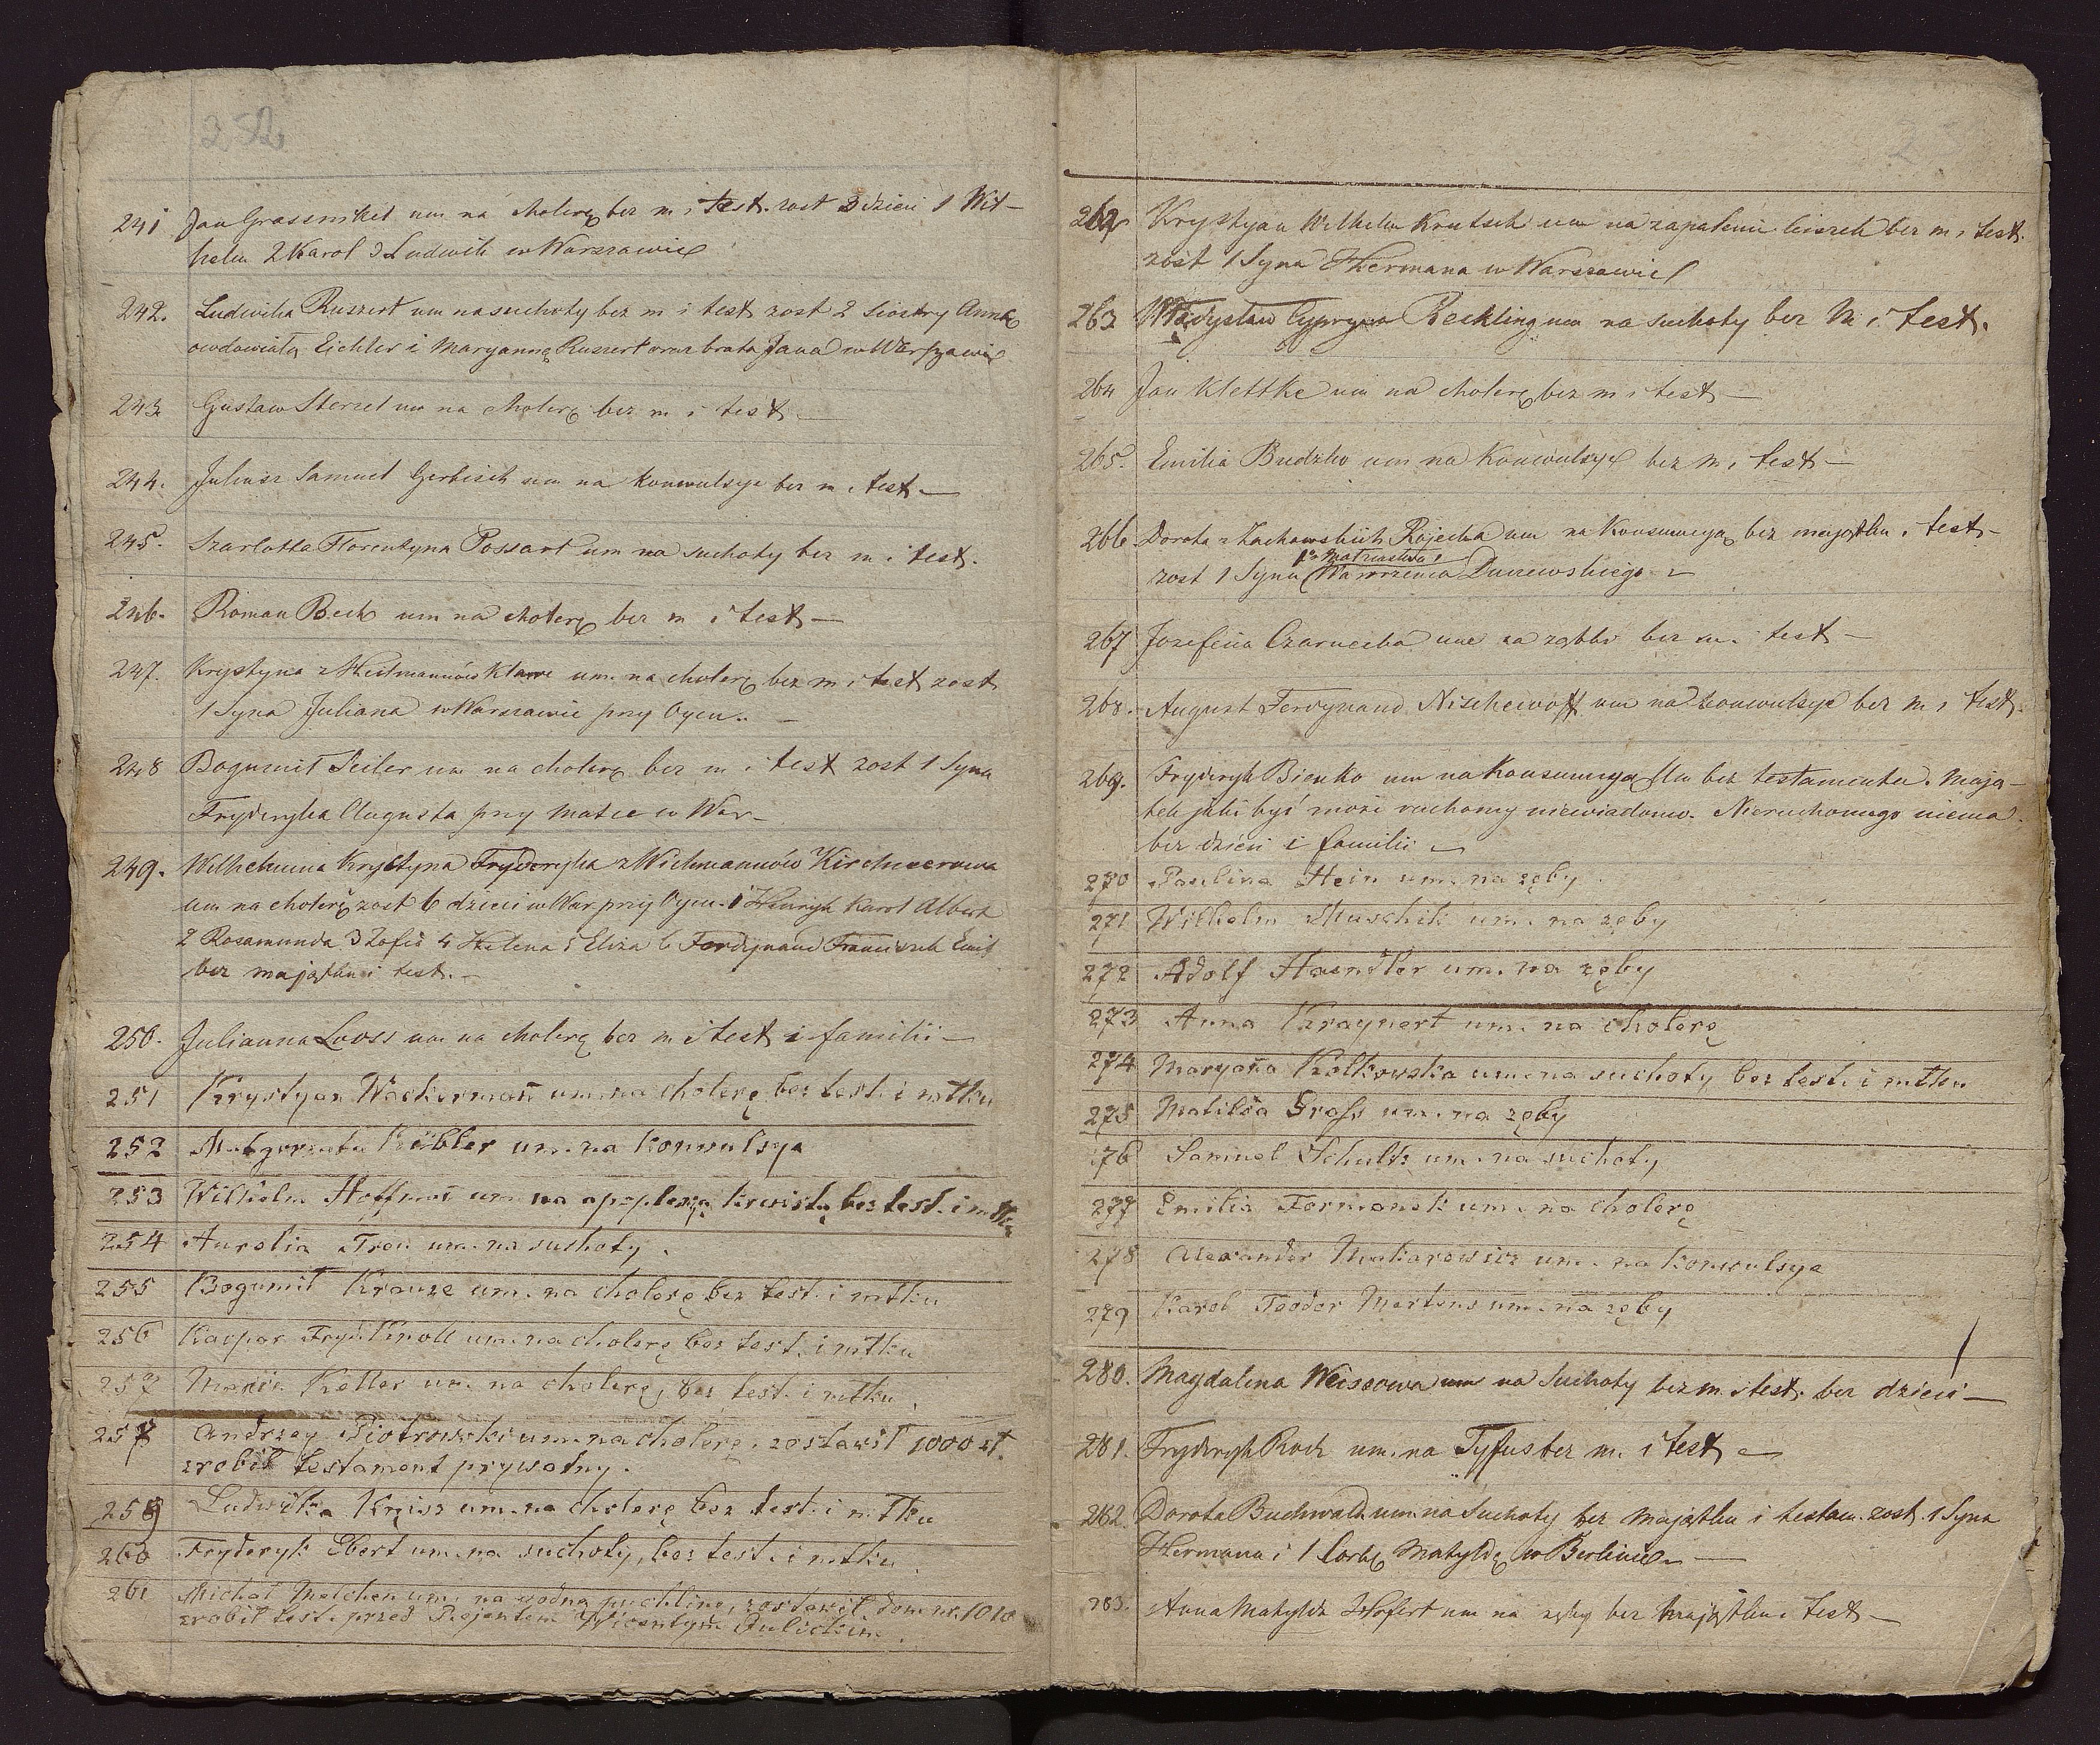 252
241 Jan Grassnikel um na cholerę bez m i test. zost 3 dzieci 1 Wil-
helm 2 Karol 3 Ludwik w Warszawie
242. Ludwika Ruszert um na suchoty bez m i test zost 2 siostry Annę
owdowiałą Eichler i Maryannę Ruszert oraz brata Jana w Warszawie
243. Gustaw Sterzel um na cholerę bez m i test —
244. Juliusz Samuel Gerbisch um na konwulsye bez m i test —
245. Szarlotta Florentyna Possart um na suchoty bez m i test.
246. Roman Beck um na cholerę bez m i test —
247. Krystyna z Heilmannów Klawe um. na cholerę bez m i test zost
1 Syna Juliana w Warszawie przy Oycu. —
248 Bogumił Seiler um na cholerę bez m i test zost 1 Syna
Fryderyka Augusta przy matce w War-
249. Wilhelmina Krystyna Fryderyka z Wichmannów Kirchnerowa
um na cholerę zost 6 dzieci w War przy Oycu. 1 Henryk Karol Albert
2 Rosamunda 3 Zofia 4 Helena 5 Eliza 6 Ferdynand Franciszek Emil
bez majątku i test. —
250. Julianna Looss um na cholerę bez m i test i familii —
251 Krystyan Wackerman um. na cholerę bez test. i mtku
252 Małgorzata Kübler um. na konwulsye
253 Wilhelm Hoffman um. na apoplexyą krwistą bez test. i mtku
254 Aurelia Treu um. na suchoty.
255 Bogumił Krauze um. na cholerę bez test. i mtku
256 Kacper Fryd. Knoll um. na cholerę bez test. i mtku
257 Marie Keller um. na cholerę, bez test. i mtku.
258 Andrzey Piotrowski um. na cholerę, zostawił 1000 zł.
zrobił testament prywatny.
259 Ludwika Kreisz um. na cholerę bez test. i mtku
260 Fryderyk Ebert um. na suchoty, bez test. i mtku.
261 Michał Melchen um. na wodną puchlinę, zostawił dom nr. 1010
zrobił test. przed Rejentem Wicentym
262 Krystyan Wilhelm Krutsch um na zapalenie kiszek bez m i test.
zost 1 Syna Hermana w Warszawie
263 Władysław Cypryan Reckling um na suchoty bez M i test.
264 Jan Klettke um na cholerę bez m i test —
265. Emilia Budzko um na Konwulsye bez m i test —
266. Dorota z Zachowskich Rajecka um na Konsumcyą bez majątku i test —
1o Małżeństwa
zost 1 Syna Wawrzenca Duszewskiego —
267 Jozefina Czarnecka um na ząbki bez m i test —
268. August Ferdynand Nischewoff um na konwulsye bez m i test.
269. Fryderyk Bienko um na Konsumcyą bez testamentu. Mają-
tek jaki być może ruchomy niewiadomo. Nieruchomego niema
bez dzieci i familii —
270 Paulina Hein um. na zęby.
271 Wilhelm Muschik um. na zęby
272 Adolf Haendler um. na zęby
273 Anna Kraynert um. na cholerę
274 Maryana Kolkowska um. na suchoty bez test. i mtku
275 Matilda Gross um. na zęby
276 Samuel Schultz um. na suchoty
277 Emilia Formanek um. na cholerę
278 Alexander Makarowicz um. na konwulsye
279 Karol Teodor Mertens um. na zęby
280. Magdalena Weissowa um na Suchoty bez m. i test. bez dzieci —
281. Fryderyk Rock um. na Tyfus bez m. i test —
282. Dorota Buchwald um. na Suchoty bez majątku i testam. zost. 1 Syna
Hermana i 1 Corkę Matyldę w Berlinie. —
283. Anna Matylda Hofert um na zęby bez majątku i test —